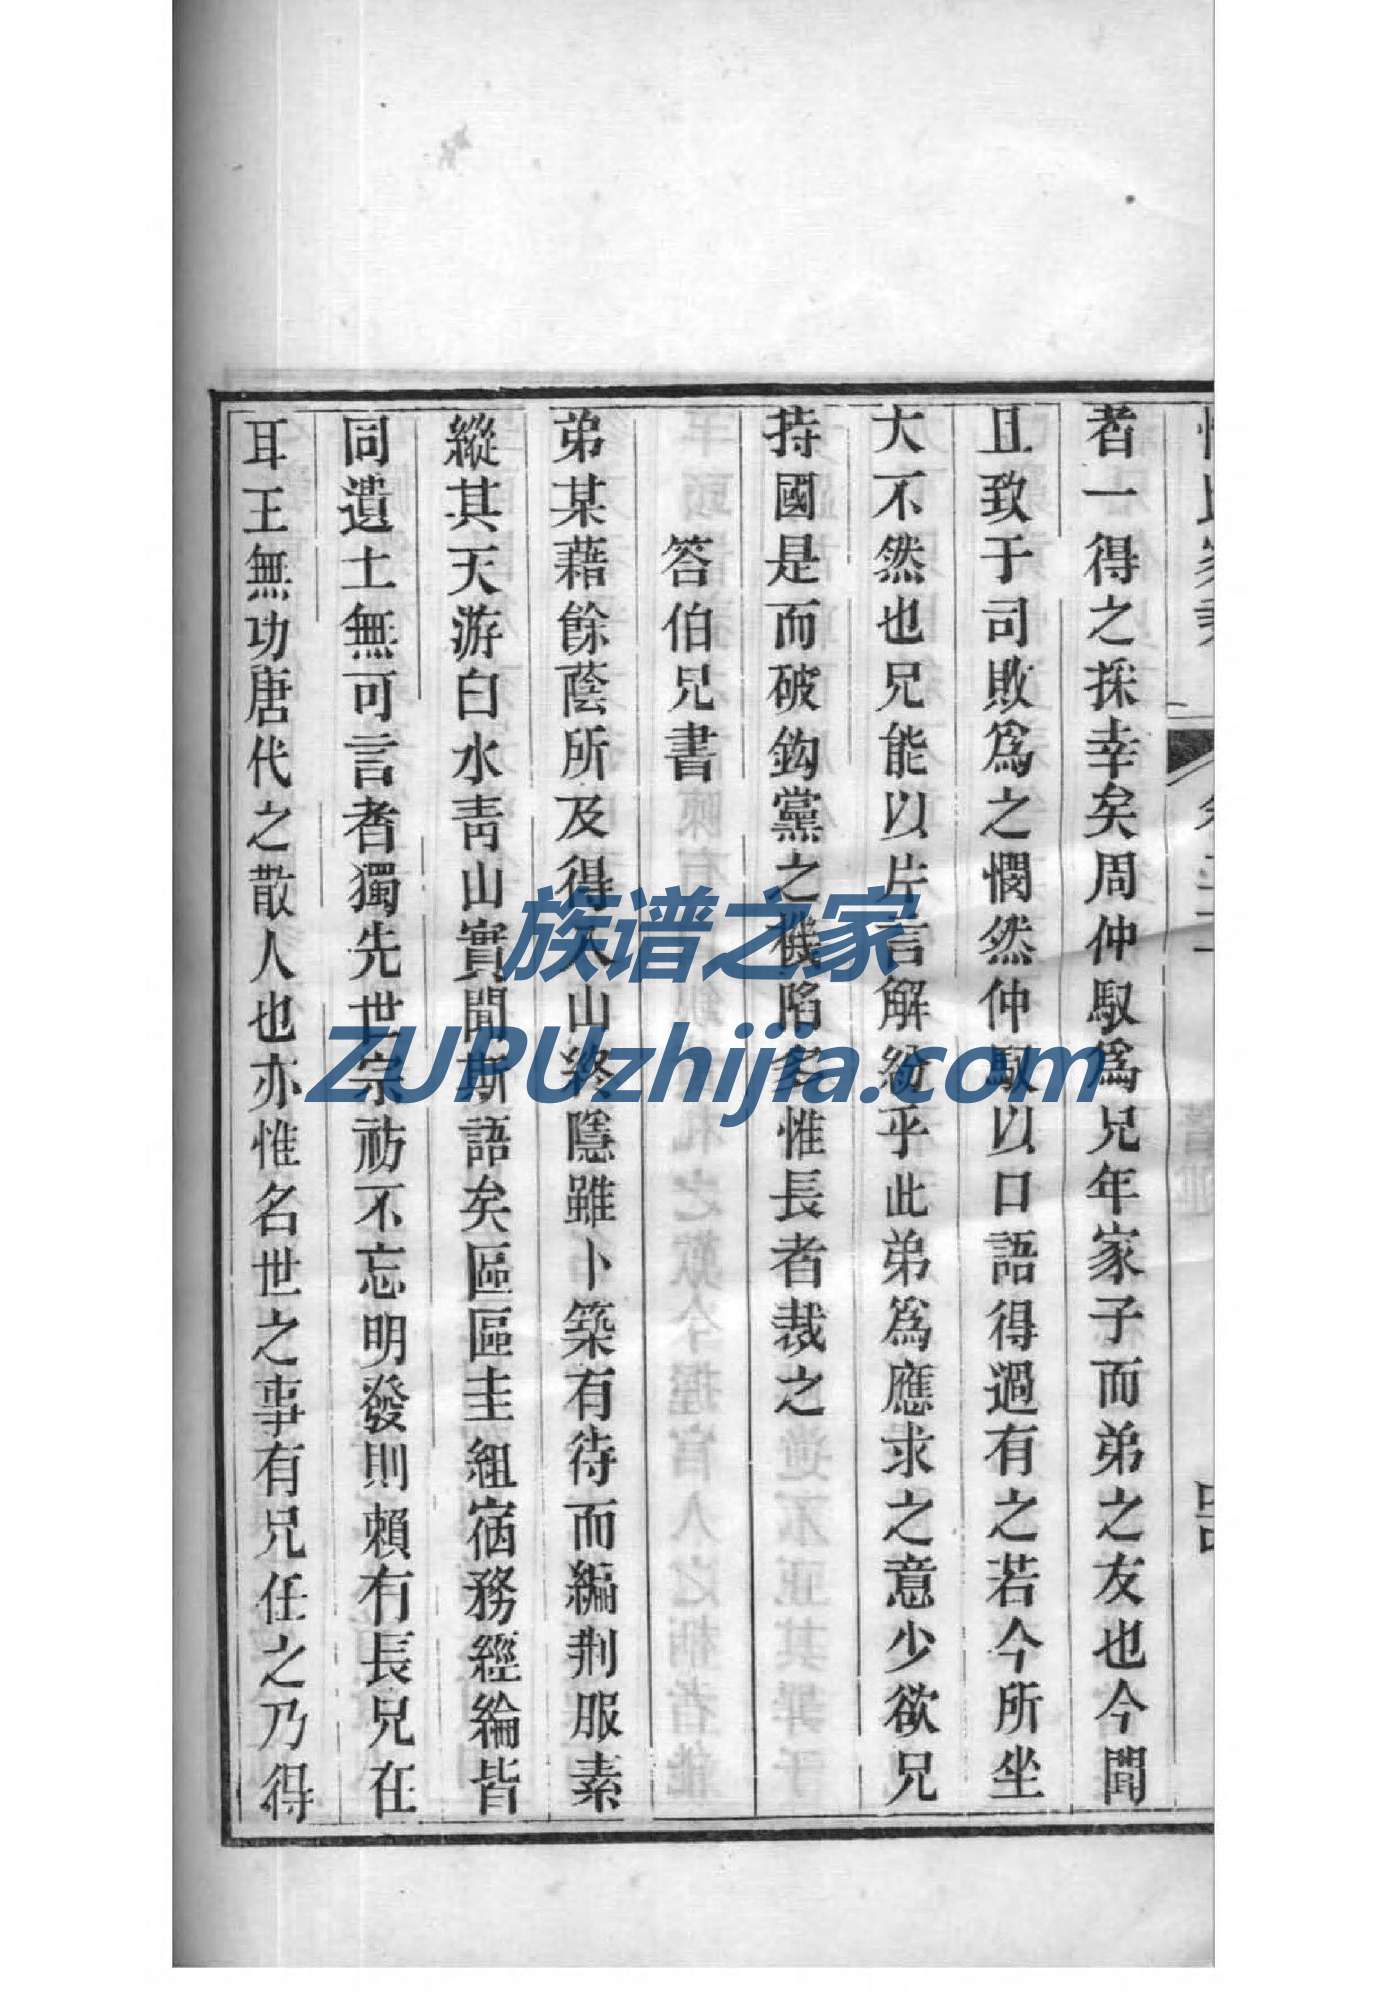 者一得之採幸矣周仲馭爲兄年家子而弟之友也今聞
且致于司敗爲之憫然仲馭以口語得過有之若今所坐
大不然也兄能以片言解紛乎此弟爲應求之意少欲兄
持國是而破鈎黨之機陷多惟長者裁之
答伯兄書
弟某藉餘蔭所及得入山終隱雖卜築有待而編荆服素
縱其天游白水靑山實聞斯語矣區區圭組宿務經綸皆
同遺土無可言者獨先世宗祊不忘明發則賴有長兄在
耳王無功唐代之散人也亦惟名世之事有兄任之乃得
族谱之家
ZUPUzhijia.com